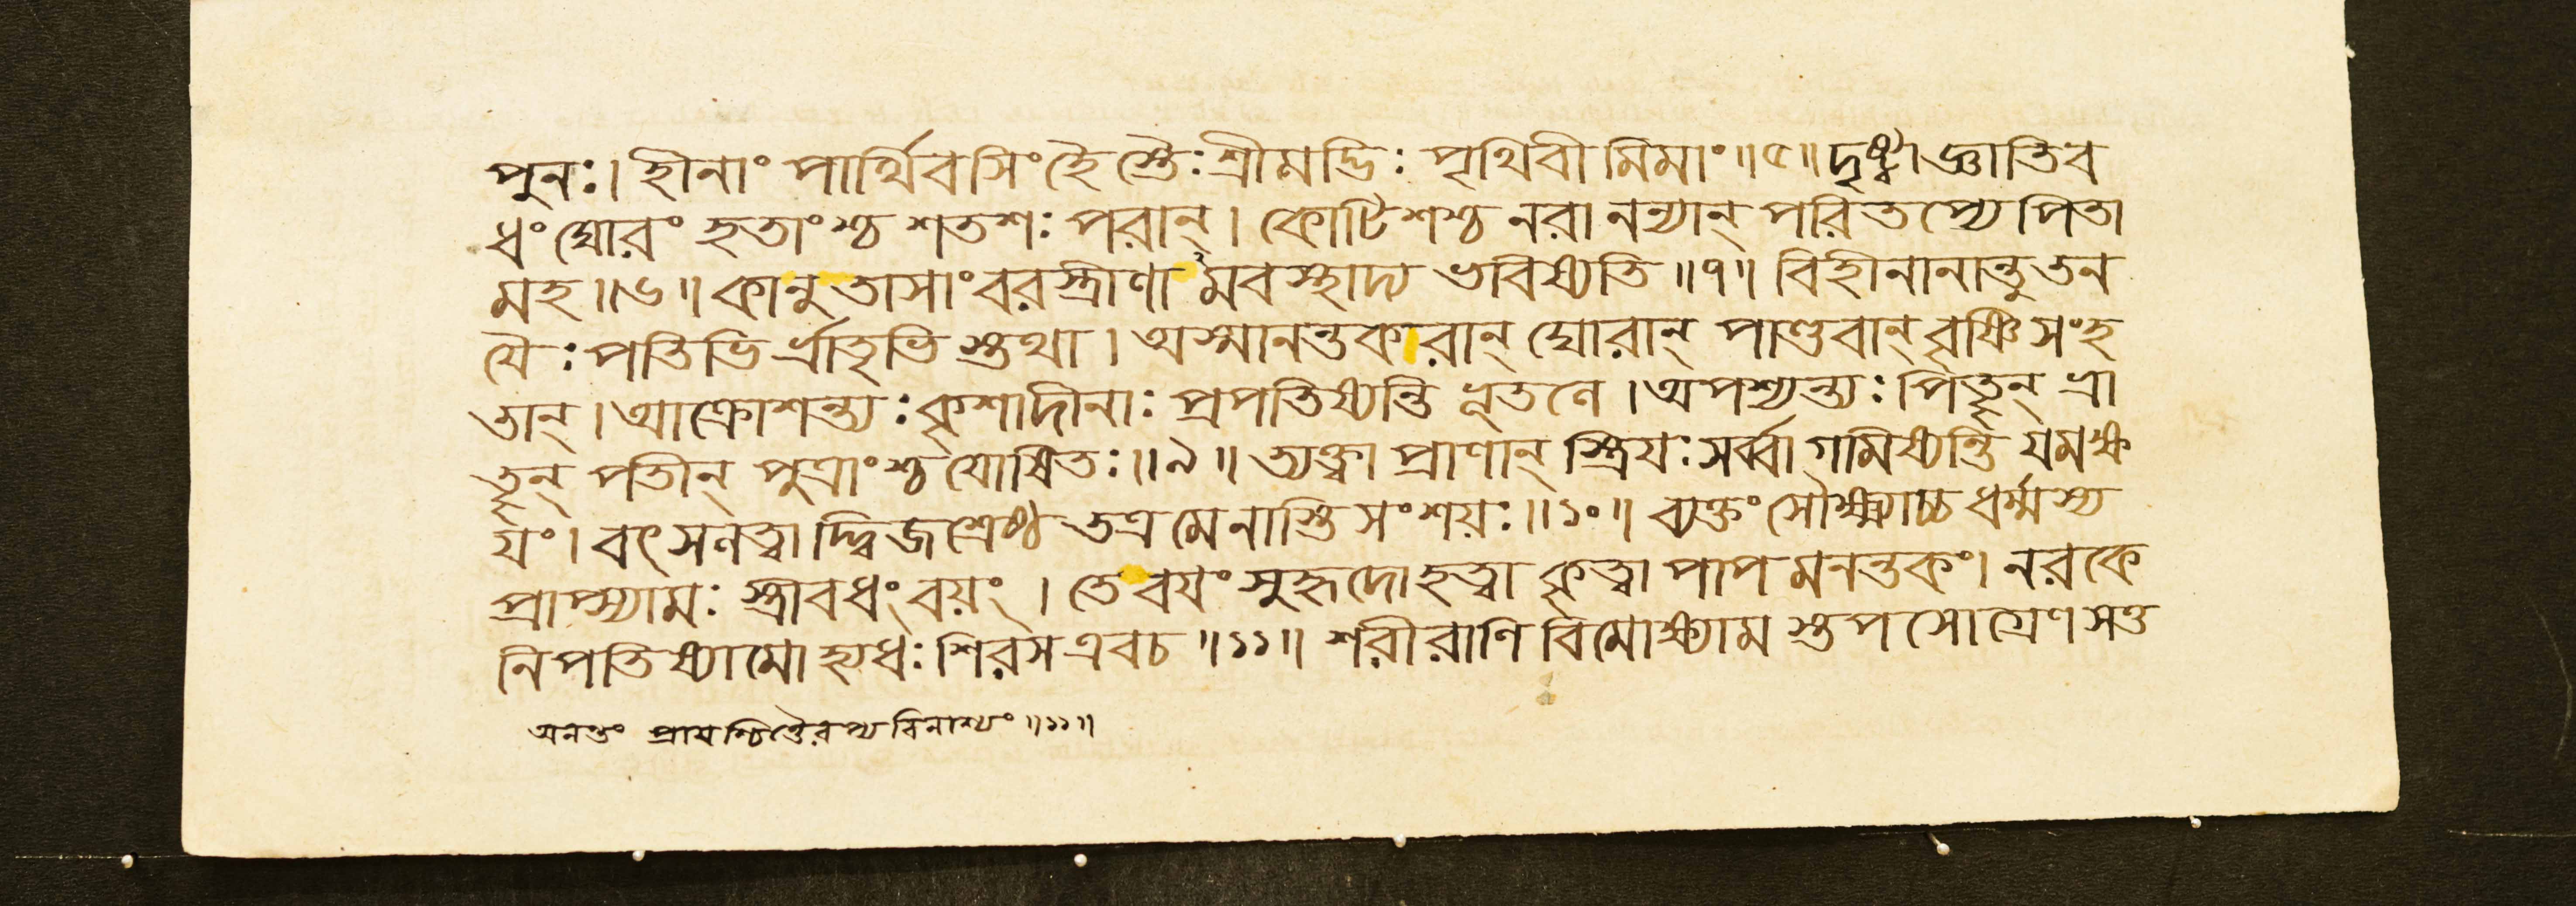 পুনঃ। হীনাং পার্থিবসিংহৈস্তৈঃ শ্রীমদ্ভিঃ পৃথিবীমিমাং॥৫॥ দৃষ্ট্বা জ্ঞাতিব
ধং ঘোরং হতাংশ্চ শতশঃ পরান্। কোটিশশ্চ নরানন্যান্ পরিতপ্যে পিতা
মহ॥৬॥ কানু তাসাং বরস্ত্রীণামবস্থাদ্য ভবিষ্যতি॥৭॥ বিহীনানান্তু তন
যৈঃ পতিভির্ভ্রাতৃভিস্তথা। অস্মানন্তকারান্ ঘোরান্ পাণ্ডবান্ বৃষ্ণিসংহ
তান্। আক্রোশন্ত্যঃ কৃশাদীনাঃ প্রপতিষ্যন্তি ভূতলে। অপশ্যন্ত্যঃ পিতৄন্ ভ্রা
তৄন্ পতীন্ পুত্রাংশ্চ যোষিতঃ॥৯॥ ত্যক্ত্বা প্রাণান্ স্ত্রিযঃ সর্ব্বা গামিষ্যন্তি যমক্ষ
যং। বৎসলত্বাদ্দ্বিজশ্রেষ্ঠ তত্র মে নাস্তি সংশয়ঃ॥১০॥ ব্যক্তং সৌক্ষ্ম্যাচ্চ ধর্ম্মস্য
প্রাপ্স্যামঃ স্ত্রীবধং বয়ং। তে বযং সুহৃদো হত্বা কৃত্বা পাপমনন্তকং। নরকে
নিপতিষ্যামো হ্যধঃশিরস এব চ॥১১॥ শরীরাণি বিমোক্ষ্যামস্তপসোগ্রেণ সত্ত
অনন্তং প্রাযশ্চিত্তৈরপ্যবিনাশ্যং॥১১॥